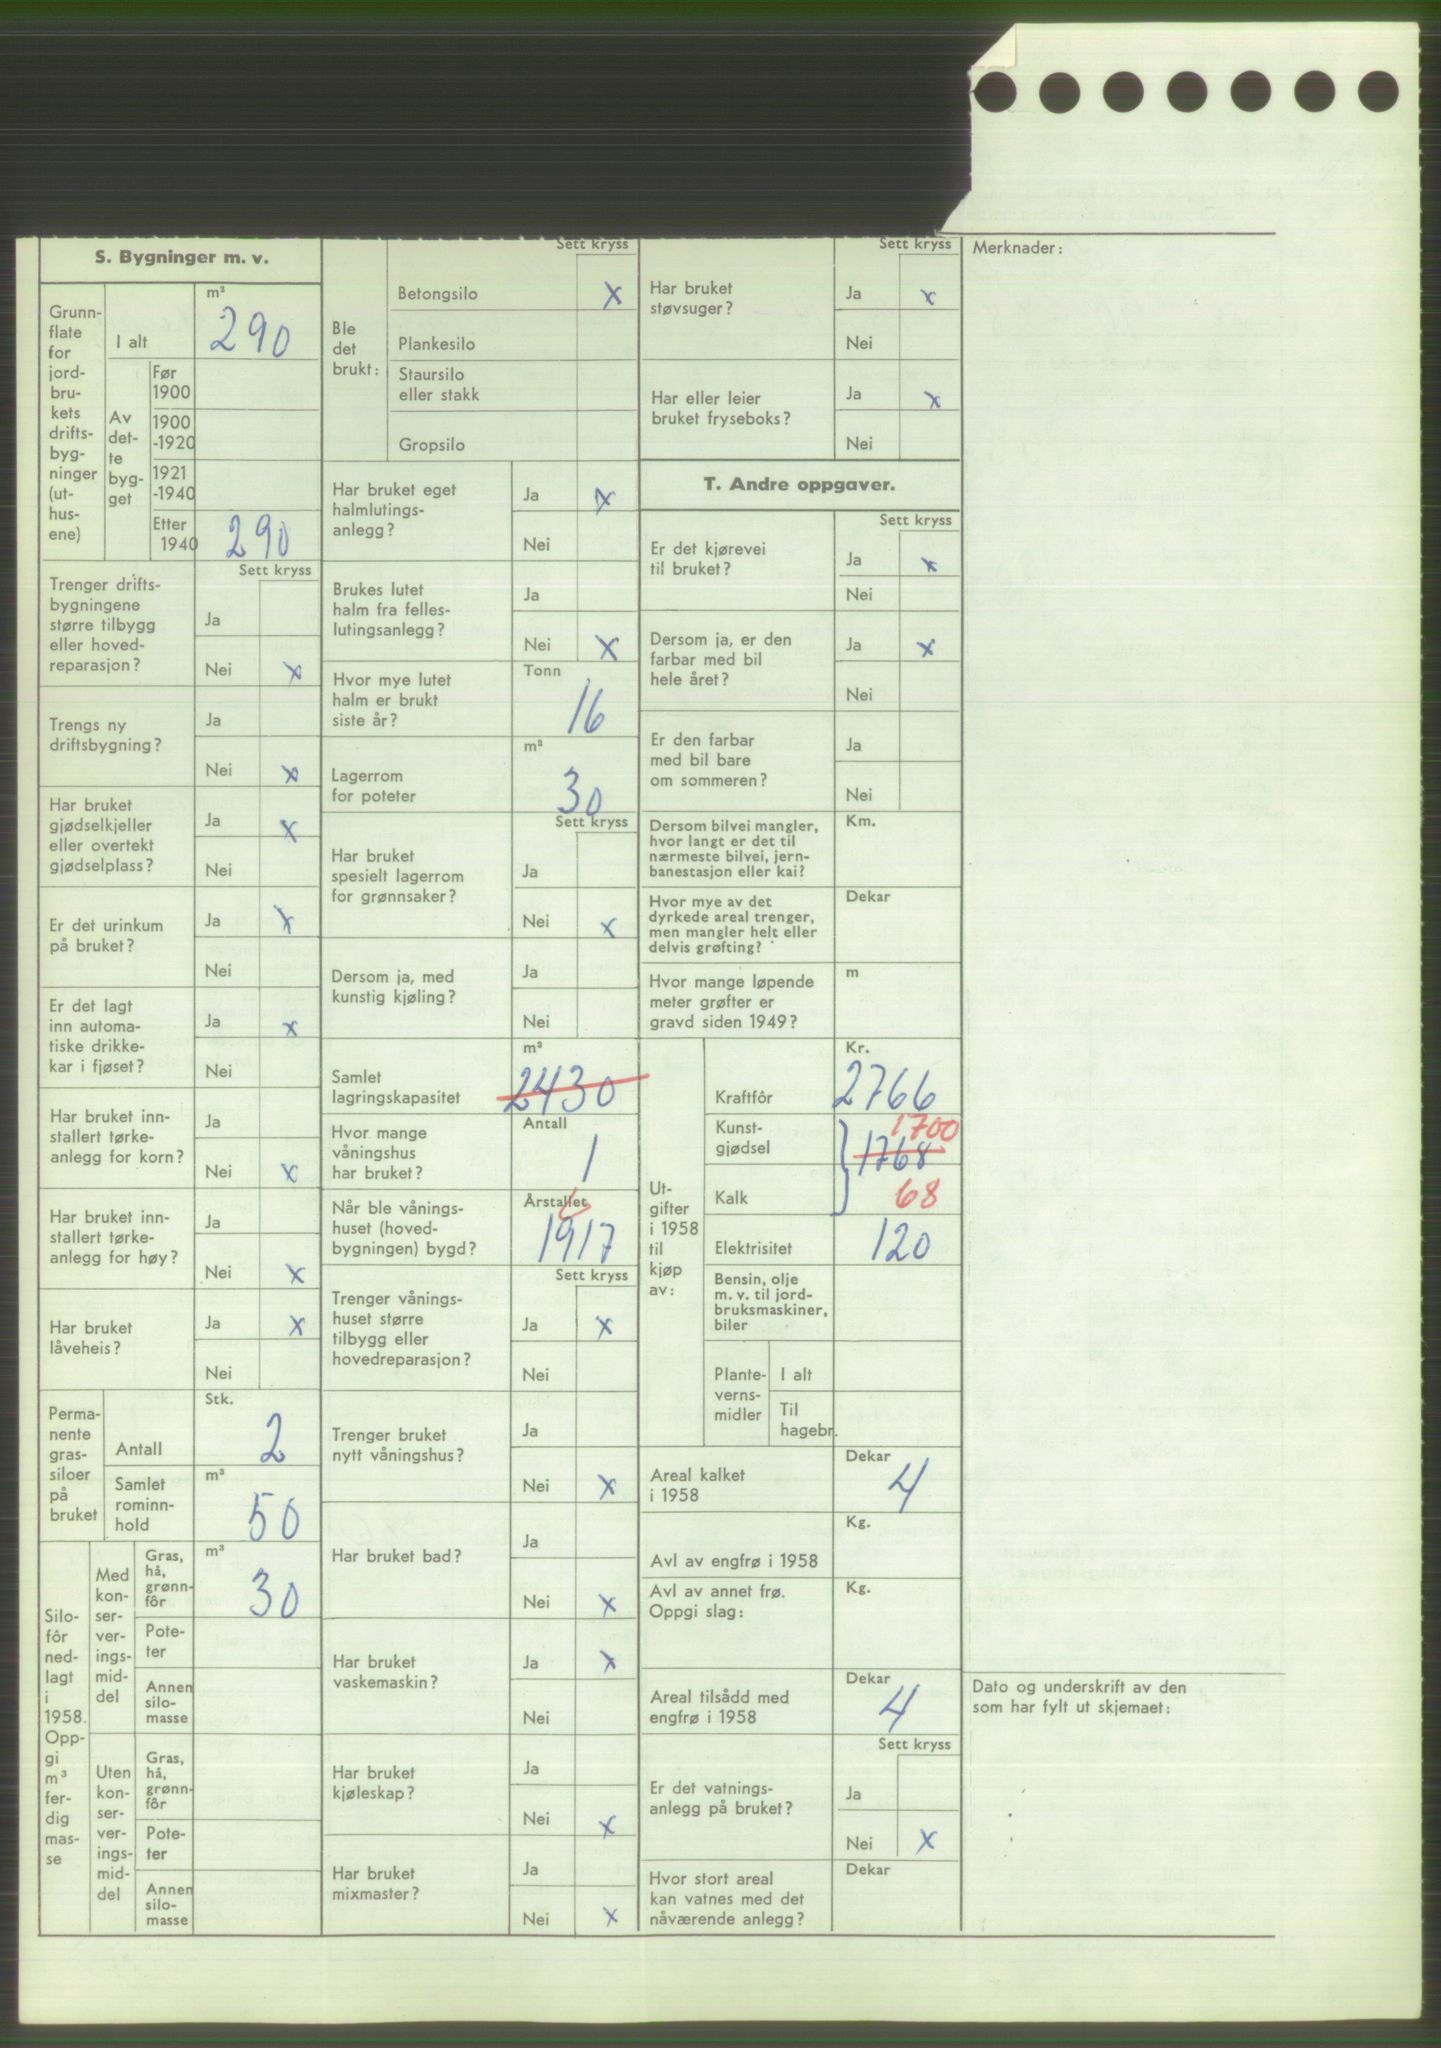 S. Bygninger m. v.
Grunn-
flate
for
jord-
bru-
kets
drifts-
byg-
ninger
(ut-
hus-
ene)
m²
I alt 290
Av
det-
te
byg-
get
Før
1900
1900
-1920
1921
-1940
Etter
1940 290
Sett kryss
Trenger drifts-
bygningene
større tilbygg
eller hoved-
reparasjon?
Ja
Nei x
Trengs ny
driftsbygning?
Ja
Nei x
Har bruket
gjødselkjeller
eller overtekt
gjødselplass?
Ja x
Nei
Er det urinkum
på bruket?
Ja x
Nei
Er det lagt
inn automa-
tiske drikke-
kar i fjøset?
Ja x
Nei
Har bruket inn-
stallert tørke-
anlegg for korn?
Ja
Nei x
Har bruket inn-
stallert tørke-
anlegg for høy?
Ja
Nei x
Har bruket
låveheis?
Ja x
Nei
Perma-
nente
gras-
siloer
på
bruket
Stk.
Antall 2
m³
Samlet
rominn-
hold
50
Silo-
fôr
ned-
lagt
i
1958.
Opp-
gi
m³
fer-
dig
mas-
se
Med
kon-
ser-
ver-
ings-
mid-
del
Gras,
hå,
grønn-
fôr
m³
30
Pote-
ter
Annen
silo-
masse
Uten
kon-
ser-
ver-
ings-
mid-
del
Gras,
hå,
grønn-
fôr
Pote-
ter
Annen
silo-
masse
Sett kryss
Ble
det
brukt:
Betongsilo X
Plankesilo
Staursilo
eller stakk
Gropsilo
Har bruket eget
halmlutings-
anlegg?
Ja x
Nei
Brukes lutet
halm fra felles-
lutingsanlegg?
Ja
Nei x
Hvor mye lutet
halm er brukt
siste år?
Tonn
16
Lagerrom
for poteter
m²
30
Sett kryss
Har bruket
spesielt lagerrom
for grønnsaker?
Ja
Nei x
Dersom ja, med
kunstig kjøling?
Ja
Nei
Samlet
lagringskapasitet
m³
2430
Hvor mange
våningshus
har bruket?
Antall
1
Når ble vånings-
huset (hoved-
bygningen) bygd?
Årstallet
1917
Sett kryss
Trenger vånings-
huset større
tilbygg eller
hovedreparasjon?
Ja x
Nei
Trenger bruket
nytt våningshus?
Ja
Nei x
Har bruket bad?
Ja
Nei x
Har bruket
vaskemaskin?
Ja x
Nei
Har bruket
kjøleskap?
Ja
Nei x
Har bruket
mixmaster?
Ja
Nei x
Sett kryss
Har bruket
støvsuger?
Ja x
Nei
Har eller leier
bruket fryseboks?
Ja x
Nei
T. Andre oppgaver.
Sett kryss
Er det kjørevei
til bruket?
Ja x
Nei
Dersom ja, er den
farbar med bil
hele året?
Ja x
Nei
Er den farbar
med bil bare
om sommeren?
Ja
Nei
Dersom bilvei mangler,
hvor langt er det til
nærmeste bilvei, jern-
banestasjon eller kai?
Km.
Hvor mye av det
dyrkede areal trenger,
men mangler helt eller
delvis grøfting?
Dekar
Hvor mange løpende
meter grøfter er
gravd siden 1949?
m
Ut-
gifter
i 1958
til
kjøp
av:
Kr.
Kraftfôr 2766
Kunst-
gjødsel
1700
1768
Kalk 68
Elektrisitet 120
Bensin, olje
m. v. til jord-
bruksmaskiner,
biler
Plante-
verns-
midler
I alt
Til
hagebr.
Areal kalket
i 1958
Dekar
4
Avl av engfrø i 1958
Kg.
Avl av annet frø.
Oppgi slag:
Kg.
Areal tilsådd med
engfrø i 1958
Dekar
4
Sett kryss
Er det vatnings-
anlegg på bruket?
Ja
Nei x
Hvor stort areal
kan vatnes med det
nåværende anlegg?
Dekar
Merknader:
Dato og underskrift av den
som har fylt ut skjemaet: